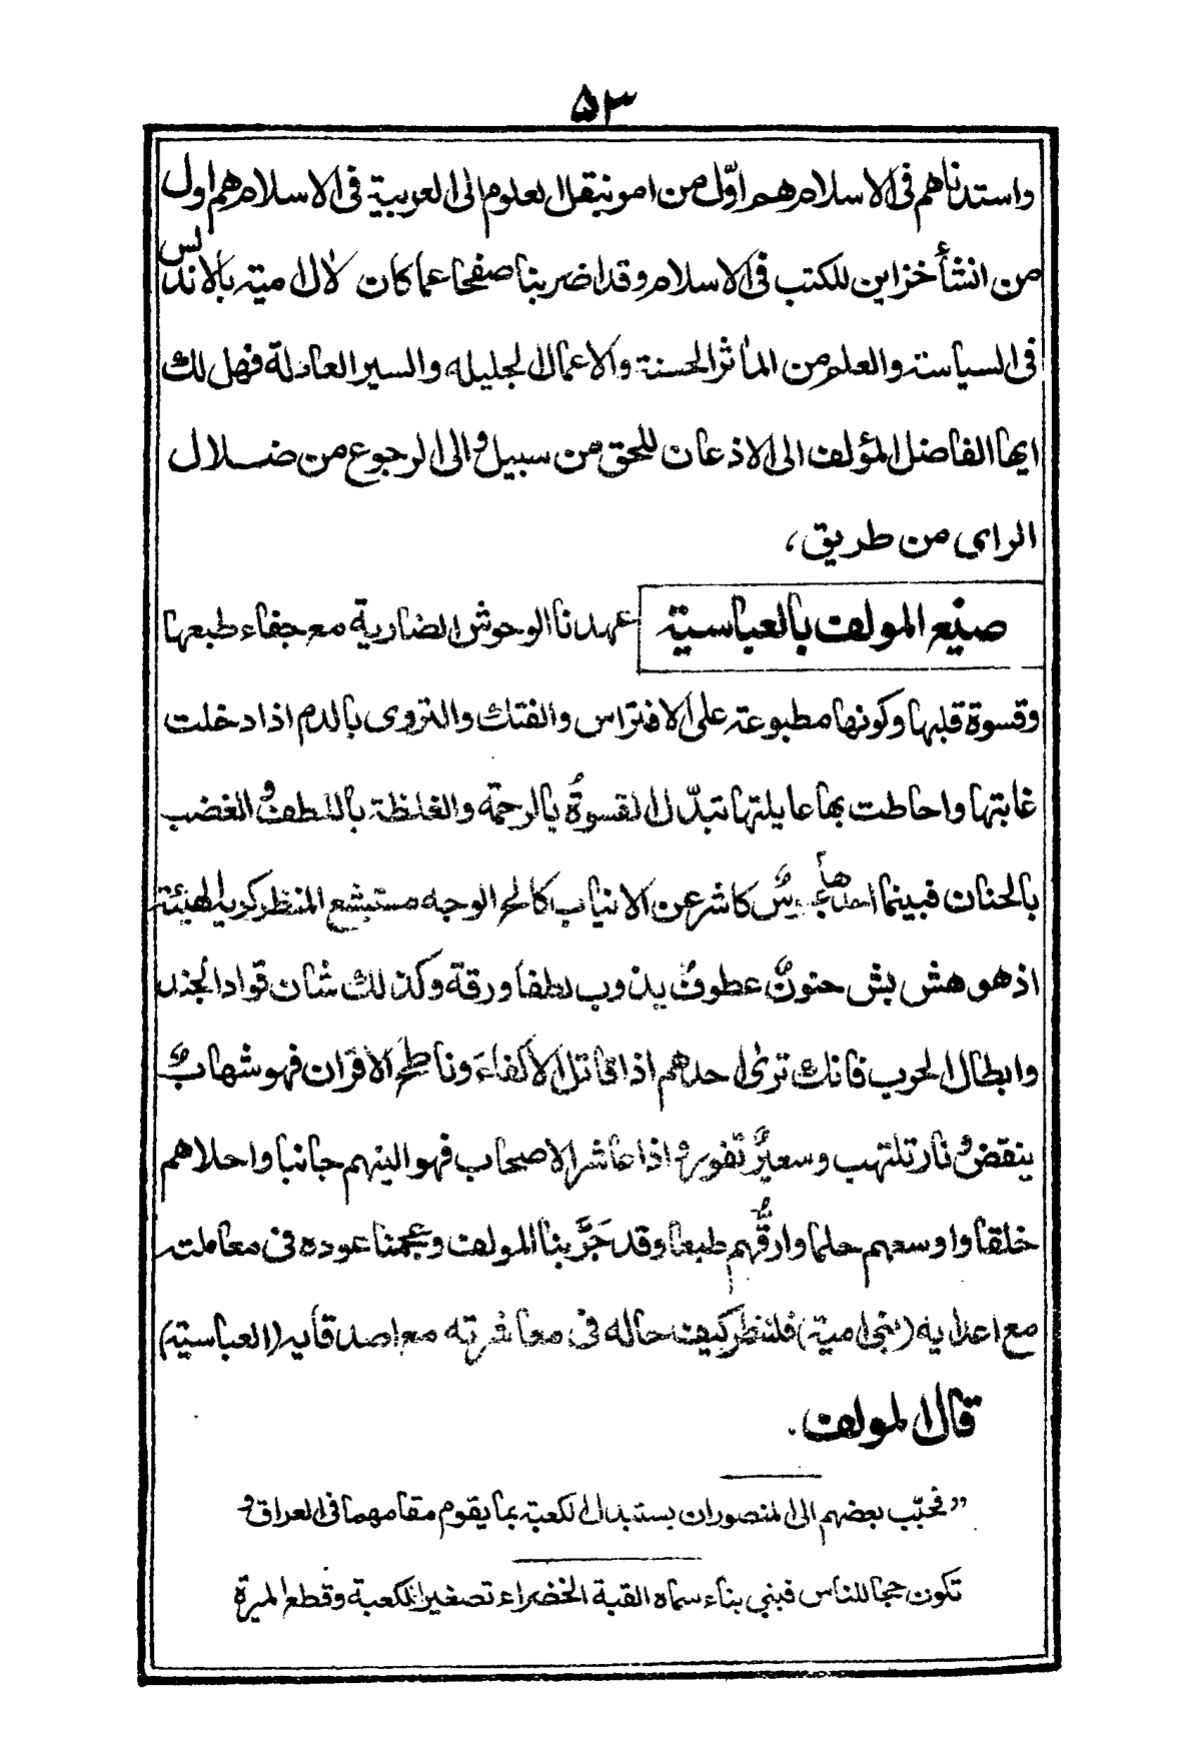 ۵۳
واستدناهم فى الاسلام هم اوّل من امر بنقل العلوم الى العربية فى الاسلام هم اول
من انشأ خزاين للكتب فى الاسلام وقد اضربنا صفحا عما كان لآل امية بالاندلس
فى السياسة والعلم من المآثر الحسنة والاعمال الجليله والسير العادلة فهل لك
ايها الفاضل المؤلف الى الاذعان للحق من سبيل والى الرجوع من ضلال
الراى من طريق،
صنيع المولف بالعباسية عهدنا الوحوش الضارية مع جفاء طبعها
وقسوة قلبها وكونها مطبوعة على الافتراس والفتك والتروى بالدم اذا دخلت
غابتها واحاطت بها عايلتها تبدّل القسوةُ بالرحمة والغلظة باللطف والغضب
بالحنان فبينما احدها عبوسٌ كاشر عن الانياب كالح الوجه مستبشع المنظر كريه الهيئة
اذ هو هش بش حنونٌ عطوفٌ يذوب لطفا ورقة وكذلك شان قواد الجند
وابطال الحرب فانك ترى احدهم اذا قاتل الأكفاءَ وناطح الأقران فهو شهابٌ
ينقض ونار تلتهب وسعيرٌ تفور واذا عاشر الاصحاب فهو الينهم جانبا واحلاهم
خلقا واوسعهم حلما وارقُّهم طبعا وقد جَرَّبنا المولف وعجمنا عوده فى معاملته
مع اعدايه (بنى امية) فلننظر كيف حاله فى معاشرته مع اصدقايه (العباسية)
قال المولف.
”فحبّب بعضهم الى المنصور ان يستبدل الكعبة بما يقوم مقامهما فى العراق و
تكون حجا للناس فبنى بناء سماه القبة الخضراء تصغيرا للكعبة وقطع الميرة